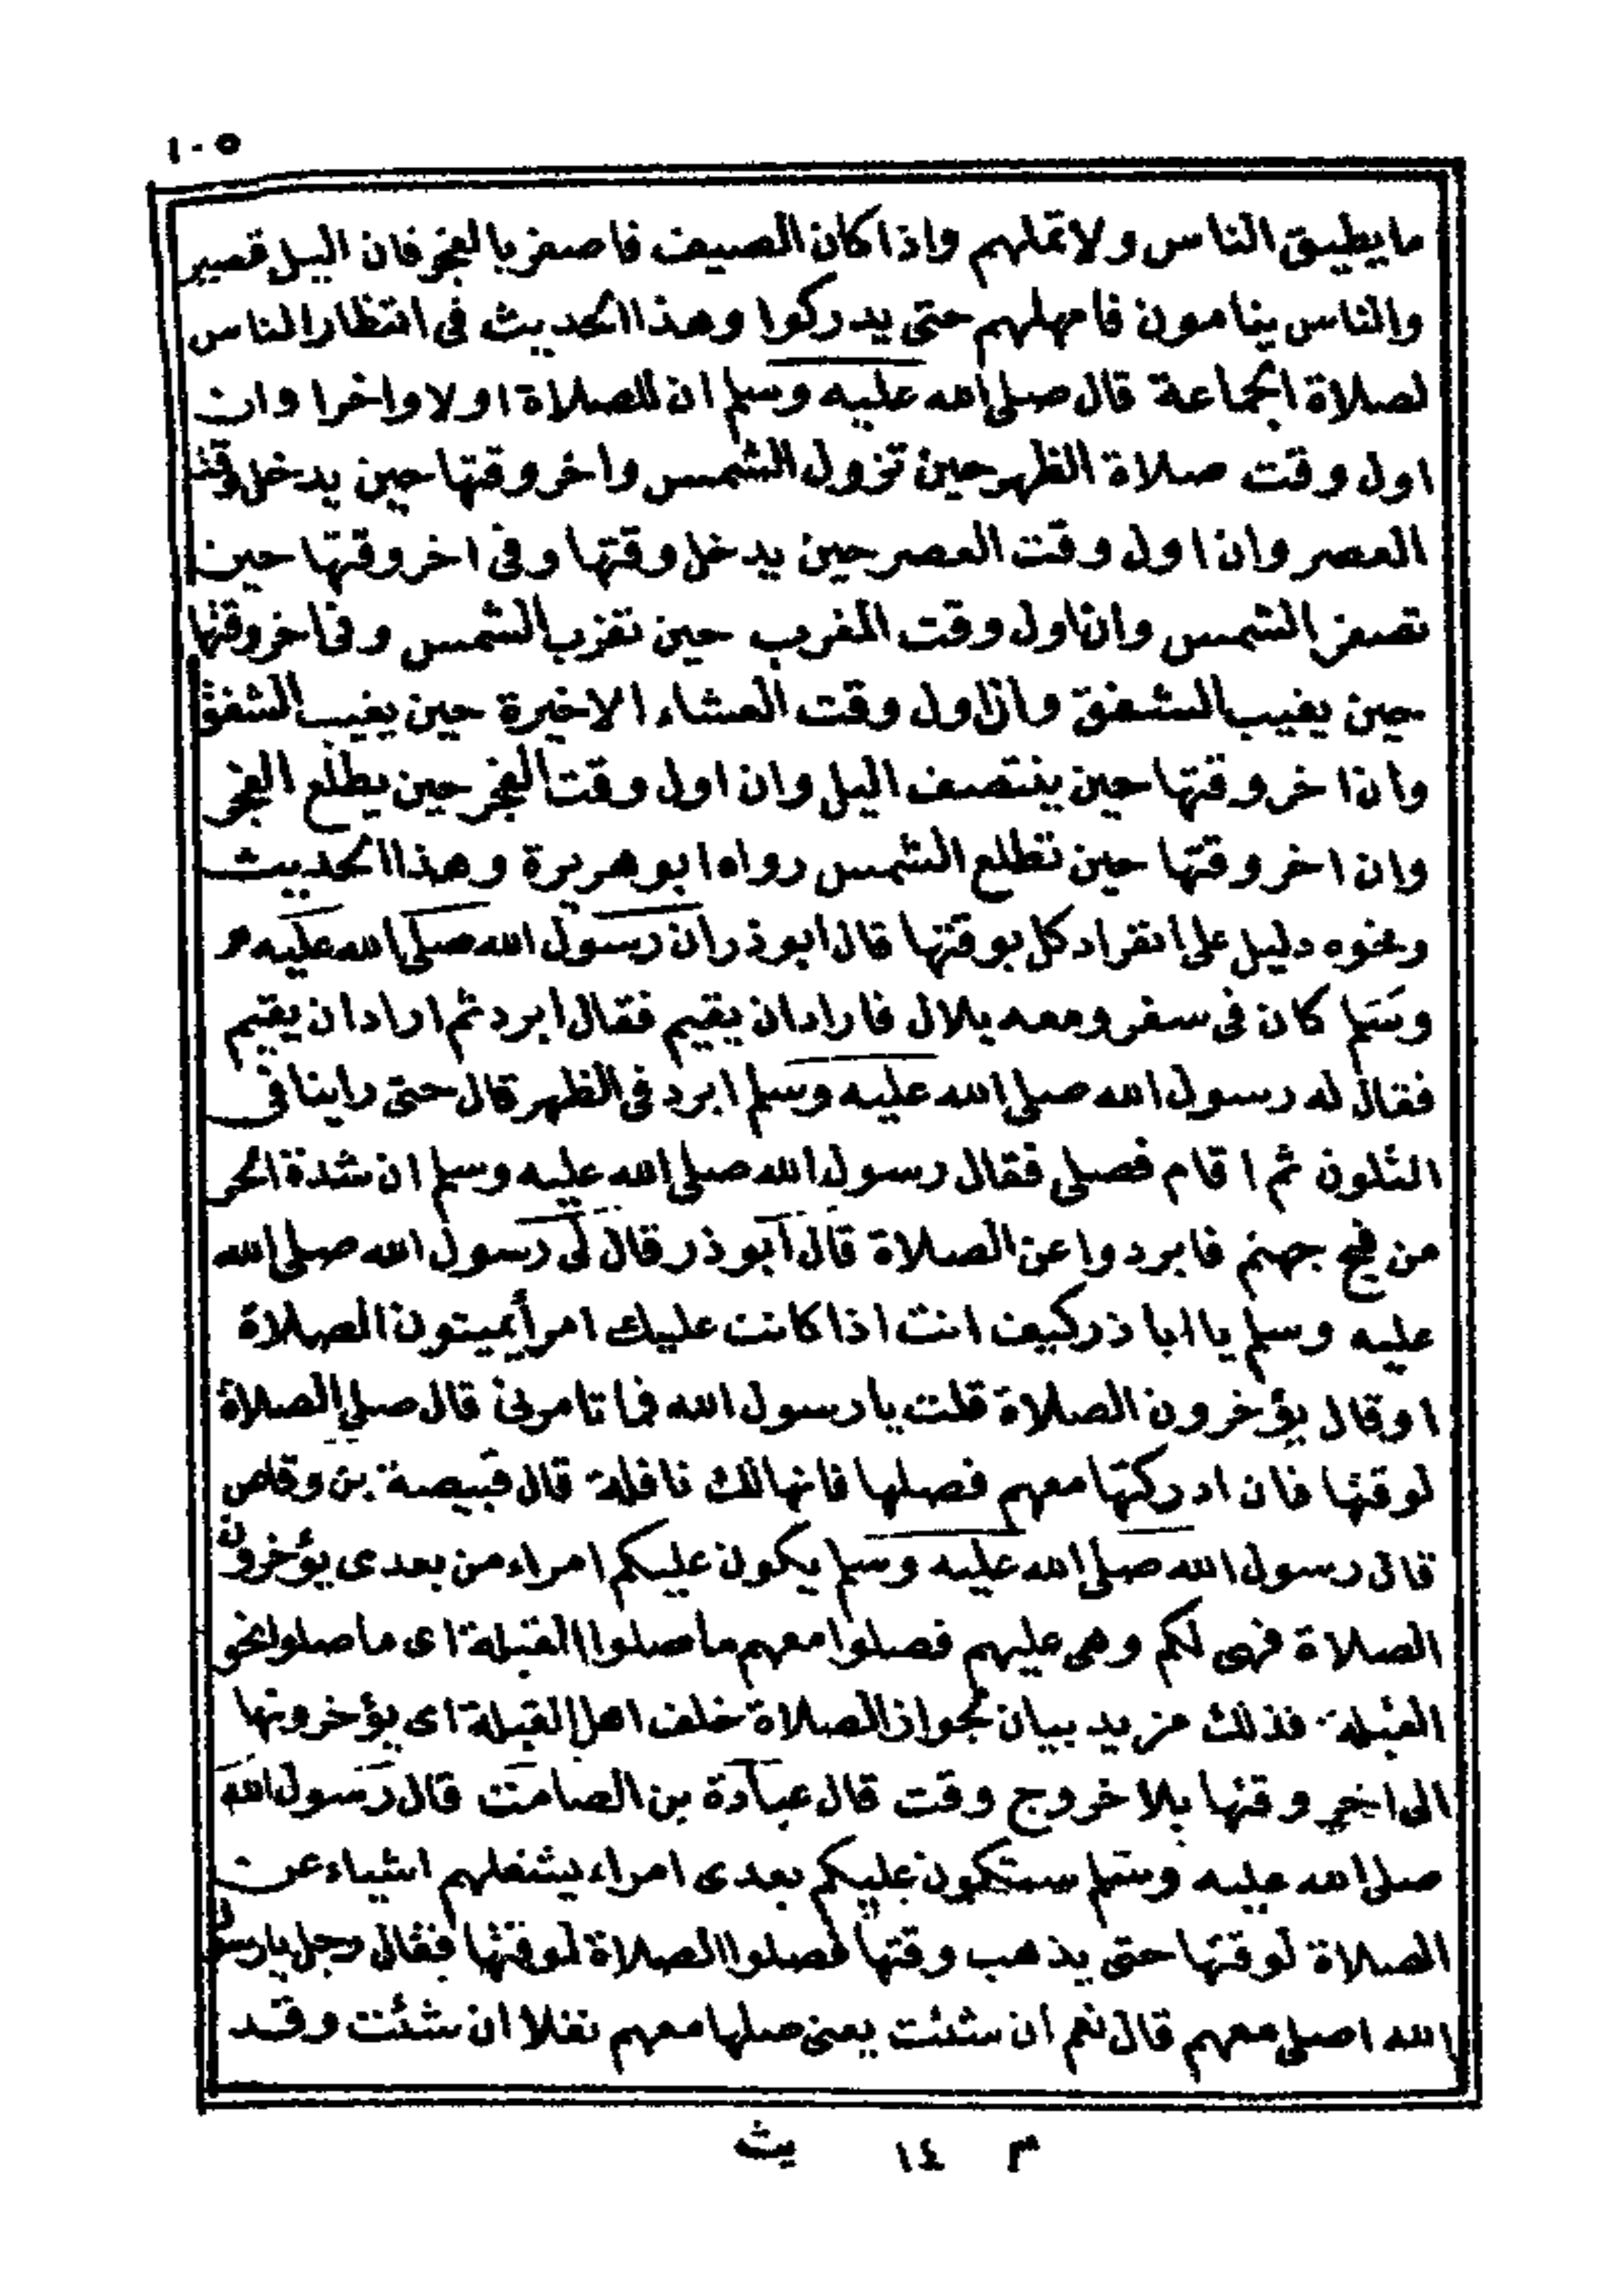 ١٠٥
ما يطيق الناس ولا تملهم واذا كان الصيف فاصفر بالفجر فان اليل قصير
والناس ينامون فامهلهم حتى يدركوا وهذا الحديث فى انتظار الناس
لصلاة الجماعة قال صلى الله عليه وسلم ان للصلاة اولا واخرا وان
اول وقت صلاة الظهر حين تزول الشمس واخر وقتها حين يدخل وقت
العصر وان اول وقت العصر حين يدخل وقتها وفى اخر وقتها حين
تصفر الشمس وان اول وقت المغرب حين تغرب الشمس وفى اخر وقتها
حين يغيب الشفق وان اول وقت العشاء الاخيرة حين يغيب الشفق
وان اخر وقتها حين ينتصف اليل وان اول وقت الفجر حين يطلع الفجر
وان اخر وقتها حين تطلع الشمس رواه ابو هريرة وهذا الحديث
ونحوه دليل على انفراد كل بوقتها قال ابو ذر ان رسول الله صلى الله عليه
وسلم كان فى سفر ومعه بلال فاراد ان يقيم فقال ابرد ثم اراد ان يقيم
فقال له رسول الله صلى الله عليه وسلم ابرد فى الظهر قال حتى راينا فى
التلون ثم اقام فصلى فقال رسول الله صلى الله عليه وسلم ان شدة الحر
من فيح جهنم فابردوا عن الصلاة قال ابو ذر قال لى رسول الله صلى الله
عليه وسلم يا ابا ذر كيف انت اذا كانت عليك امرأ يميتون الصلاة
او قال يؤخرون الصلاة قلت يا رسول الله فما تامرنى قال صلى الصلاة
لوقتها فان ادركتها معهم فصلها فانها لك نافلة قال قبيصة بن وقاص
قال رسول الله صلى الله عليه وسلم يكون عليكم امراء من بعدى يؤخرون
الصلاة فهى لكم وهى عليهم فصلوا معهم ما صلوا القبلة اى ما صلوا نحو
القبلة فذلك مزيد بيان لجواز الصلاة خلف اهل القبلة اى يؤخرونها
الى اخر وقتها بلا خروج وقت قال عبادة بن الصامت قال رسول الله
صلى الله عليه وسلم ستكون عليكم بعدى امراء يشغلهم اشياء عن
الصلاة لوقتها حتى يذهب وقتها فصلوا الصلاة لوقتها فقال رجل يا رسول
الله اصلى معهم قال نعم ان شئت يعنى صلها معهم نفلا ان شئت وقد
م ١٤ يث